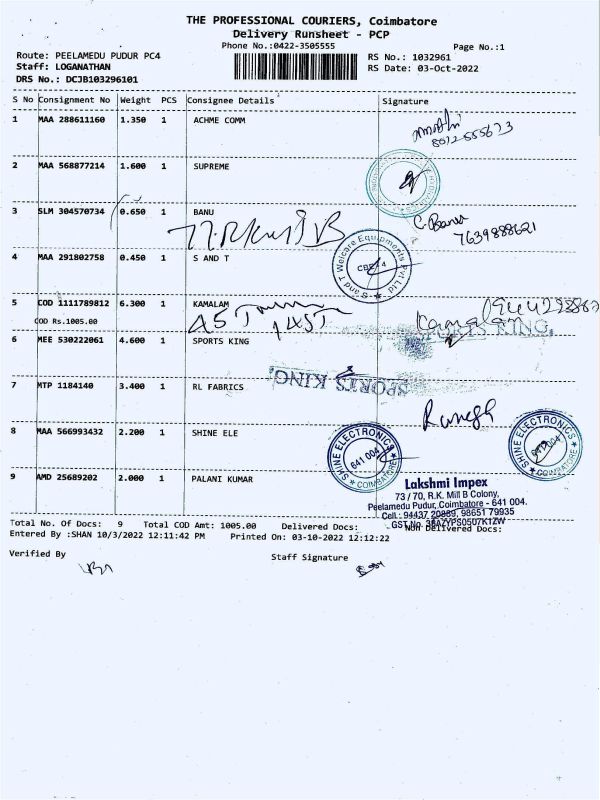 THE PROFESSIONAL COURIERS, Coimbatore
Delivery Runsheet - PCP
Phone No.:0422-3505555
Page No.:1
Route: PEELAMEDU PUDUR PC4
RS No.: 1032961
Staff: LOGANATHAN
RS Date: 03-Oct-2022
DRS No.: DCJB103296101
S No Consignment No Weight PCS Consignee Details Signature
1 MAA 288611160 1.350 1 ACHME COMM
2 MAA 568877214 1.600 1 SUPREME
3 SLM 304570734 0.650 1 BANU
C. Banu
7639888621
4 MAA 291802758 0.450 1 S AND T
S and T Welcare Equipments Pvt Ltd
5 COD 1111789812 6.300 1 KAMALAM
COD Rs.1005.00
6 MEE 530222061 4.600 1 SPORTS KING
SPORTS KING
SPORTS KING
7 MTP 1184140 3.400 1 RL FABRICS
Ramesh
8 MAA 566993432 2.200 1 SHINE ELE
SHINE ELECTRONICS
641 004
COIMBATORE
SHINE ELECTRONICS
641 004
COIMBATORE
9 AMD 25689202 2.000 1 PALANI KUMAR
Lakshmi Impex
73 / 70, R.K. Mill B Colony,
Peelamedu Pudur, Coimbatore - 641 004.
Cell: 94437 20889, 98651 79935
GST No.
Total No. Of Docs: 9 Total COD Amt: 1005.00 Delivered Docs: Non Delivered Docs:
Entered By :SHAN 10/3/2022 12:11:42 PM Printed On: 03-10-2022 12:12:22
Verified By
Staff Signature